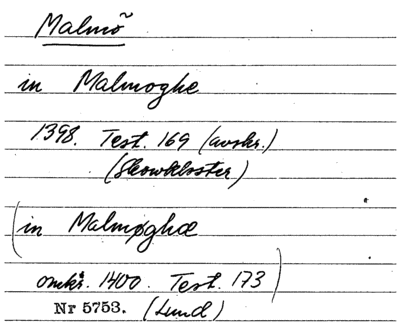 Malmö
in Malmoghe
1398. Test. 169 (avskr.)
(Skowkloster)
(in Malmøghæ
omkr. 1400. Test. 173)
Nr 5753. (Lund)